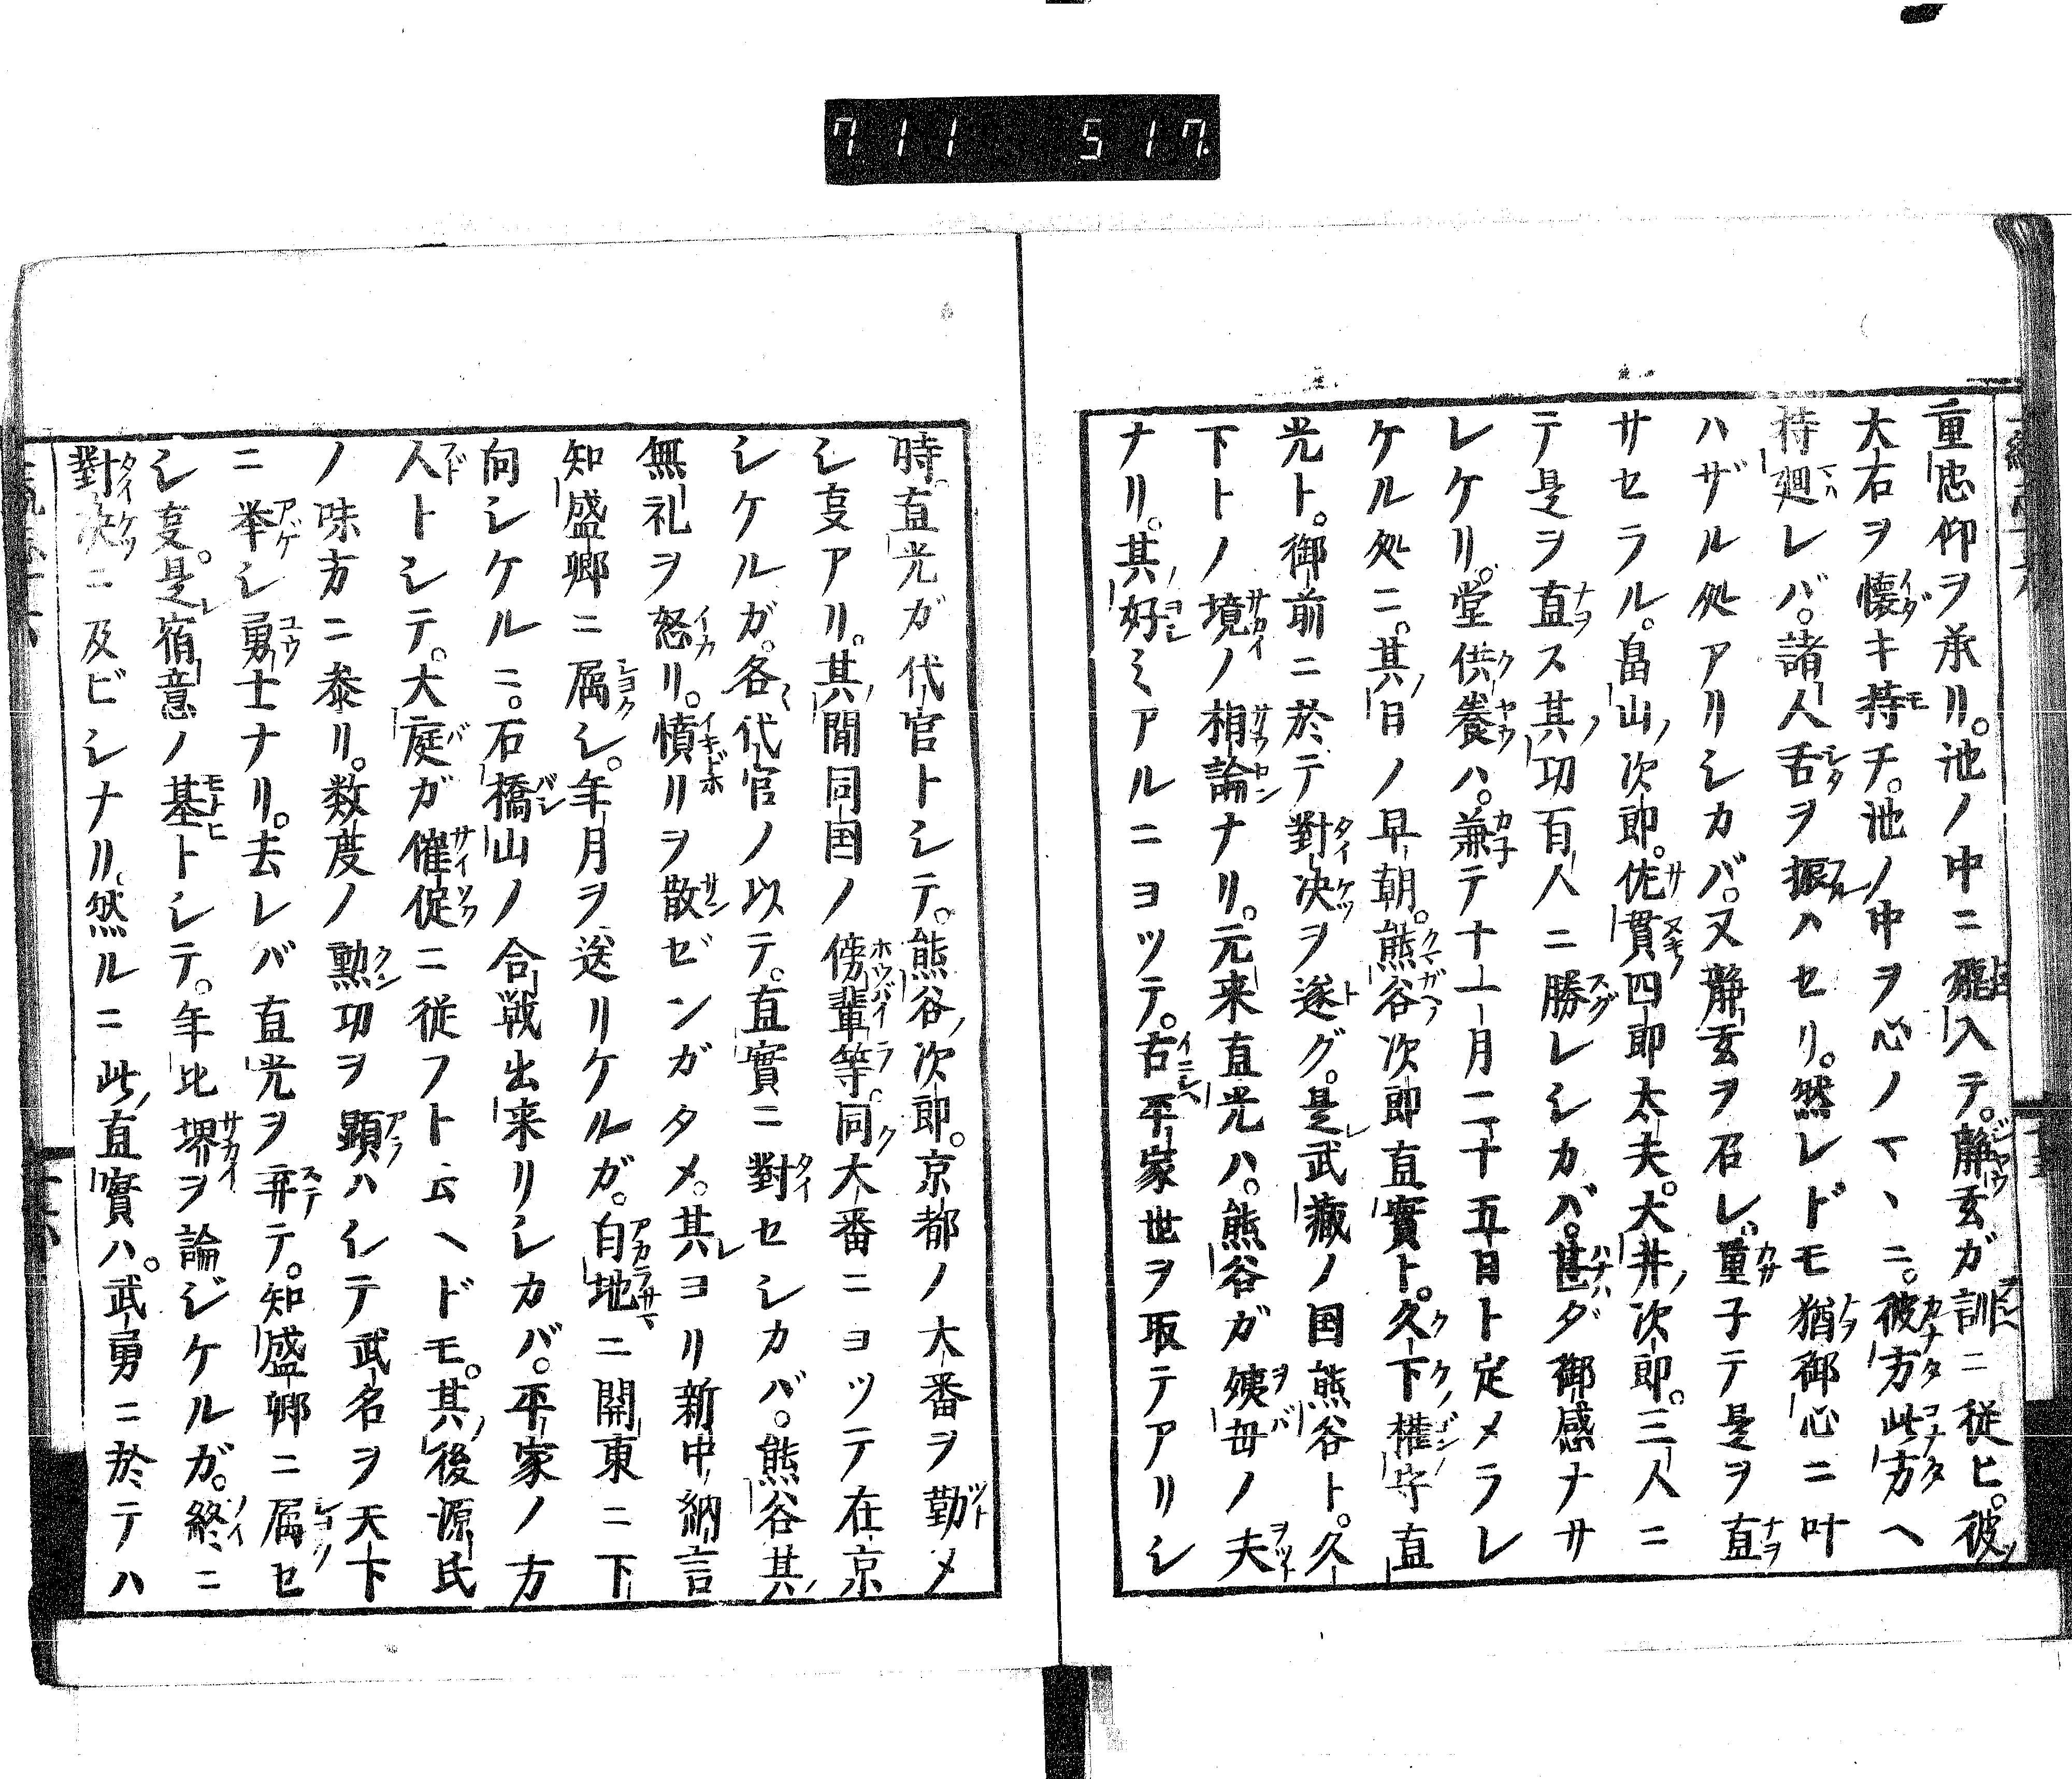 711 517.
重忠仰ヲ承リ。池ノ中ニ飛入テ。静玄ガ訓ニ従ヒ。彼ノ
大石ヲ懐キ持チ。池ノ中ヲ心ノマヽニ。彼方此方ヘ
持廻レバ。諸人舌ヲ振ハセリ。然レドモ猶御心ニ叶
ハザル処アリシカバ。又静玄ヲ召レ。重子テ是ヲ直
サセラル。畠山ノ次郎。佐貫四郎太夫。大井ノ次郎。三人ニ
テ是ヲ直ス其ノ功百人ニ勝レシカバ。甚ダ御感ナサ
レケリ。堂供養ハ。兼テ十一月二十五日ト定メラレ
ケル処ニ。其ノ日ノ早朝。熊谷次郎直實ト。久下権守直
光ト。御前ニ於テ對决ヲ遂グ。是レ武藏ノ国熊谷ト。久
下トノ境ノ相論ナリ。元来直光ハ。熊谷ガ姨母ノ夫
ナリ。其ノ好ミアルニヨツテ。古平家世ヲ取テアリシ
時。直光ガ代官トシテ。熊谷ノ次郎。京都ノ大番ヲ勤メ
シ叓アリ。其ノ間同国ノ傍輩等。同ク大番ニヨツテ在京
シケルガ。各〻代官ノ以テ。直實ニ對セシカバ。熊谷其ノ
無礼ヲ怒リ。憤リヲ散ゼンガタメ。其レヨリ新中納言
知盛卿ニ属シ。年月ヲ送リケルガ。白地ニ関東ニ下
向シケルニ。石橋山ノ合戦出来リシカバ。平家ノ方
人トシテ。大庭ガ催促ニ従フト云ヘドモ。其ノ後源氏
ノ味方ニ参リ。数度ノ勲功ヲ顕ハシテ武名ヲ天下
ニ挙シ勇士ナリ。去レバ直光ヲ弃テ。知盛卿ニ属セ
シ叓。是レ宿意ノ基トシテ。年比堺ヲ論ジケルガ。終ニ
對决ニ及ビシナリ。然ルニ此ノ直實ハ。武勇ニ於テハ